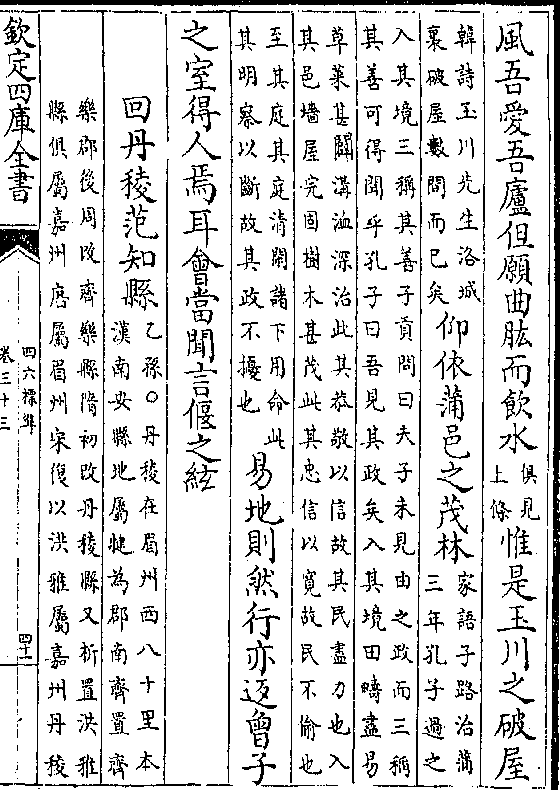 風吾愛吾廬但願曲肱而飲水俱見上條惟是玉川之破屋
韓詩玉川先生洛城裏破屋數間而已矣仰依蒲邑之茂林家語子路治蒲三年孔子過之
入其境三稱其善子貢問曰夫子未見由之政而三稱
其善可得聞乎孔子曰吾見其政矣入其境田疇盡易
草萊甚闢溝洫深治此其恭敬以信故其民盡力也入
其邑墻屋完固樹木甚茂此其忠信以寬故民不偷也
至其庭其庭清閒諸下用命此其明察以斷故其政不擾也易地則然行亦迓曾子
之室得人焉耳會當聞言偃之絃
回丹稜范知縣乙縣○丹稜在眉州西八十里本漢南安縣地屬犍為郡南齊置齊
樂郡後周改齊樂縣隋初改丹稜縣又析置洪雅
縣俱屬嘉州唐屬眉州宋復以洪雅屬嘉州丹稜
欽定四庫全書
四六標準
卷三十三
四十一